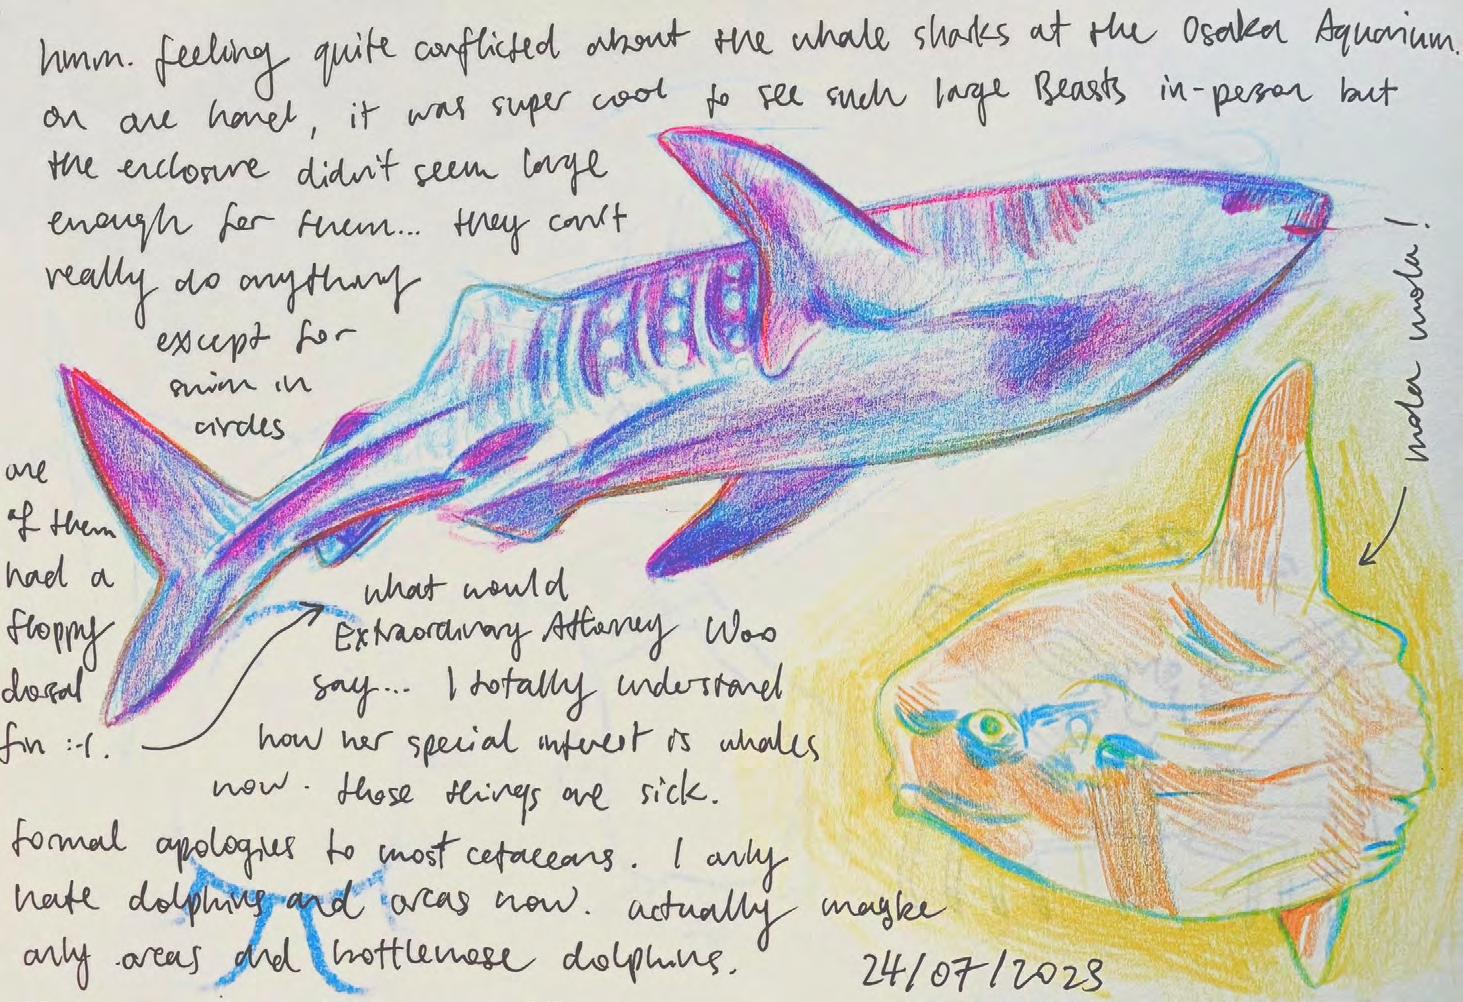 hmm. feeling quite conflicted about the whale sharks at the Osaka Aquarium.
on one hand, it was super cool to see such large Beasts in-person but
the enclosure didn't seem large
enough for them... they can't
really do anything
except for
swim in
circles
one
of them
had a
floppy
dorsal
fin :-(.
what would
Extraordinary Attorney Woo
say... I totally understand
how her special interest is whales
now. those things are sick.
formal apologies to most cetaceans. I only
hate dolphins and orcas now. actually maybe
only orcas and bottlenose dolphins.
mola mola!
24/07/2023